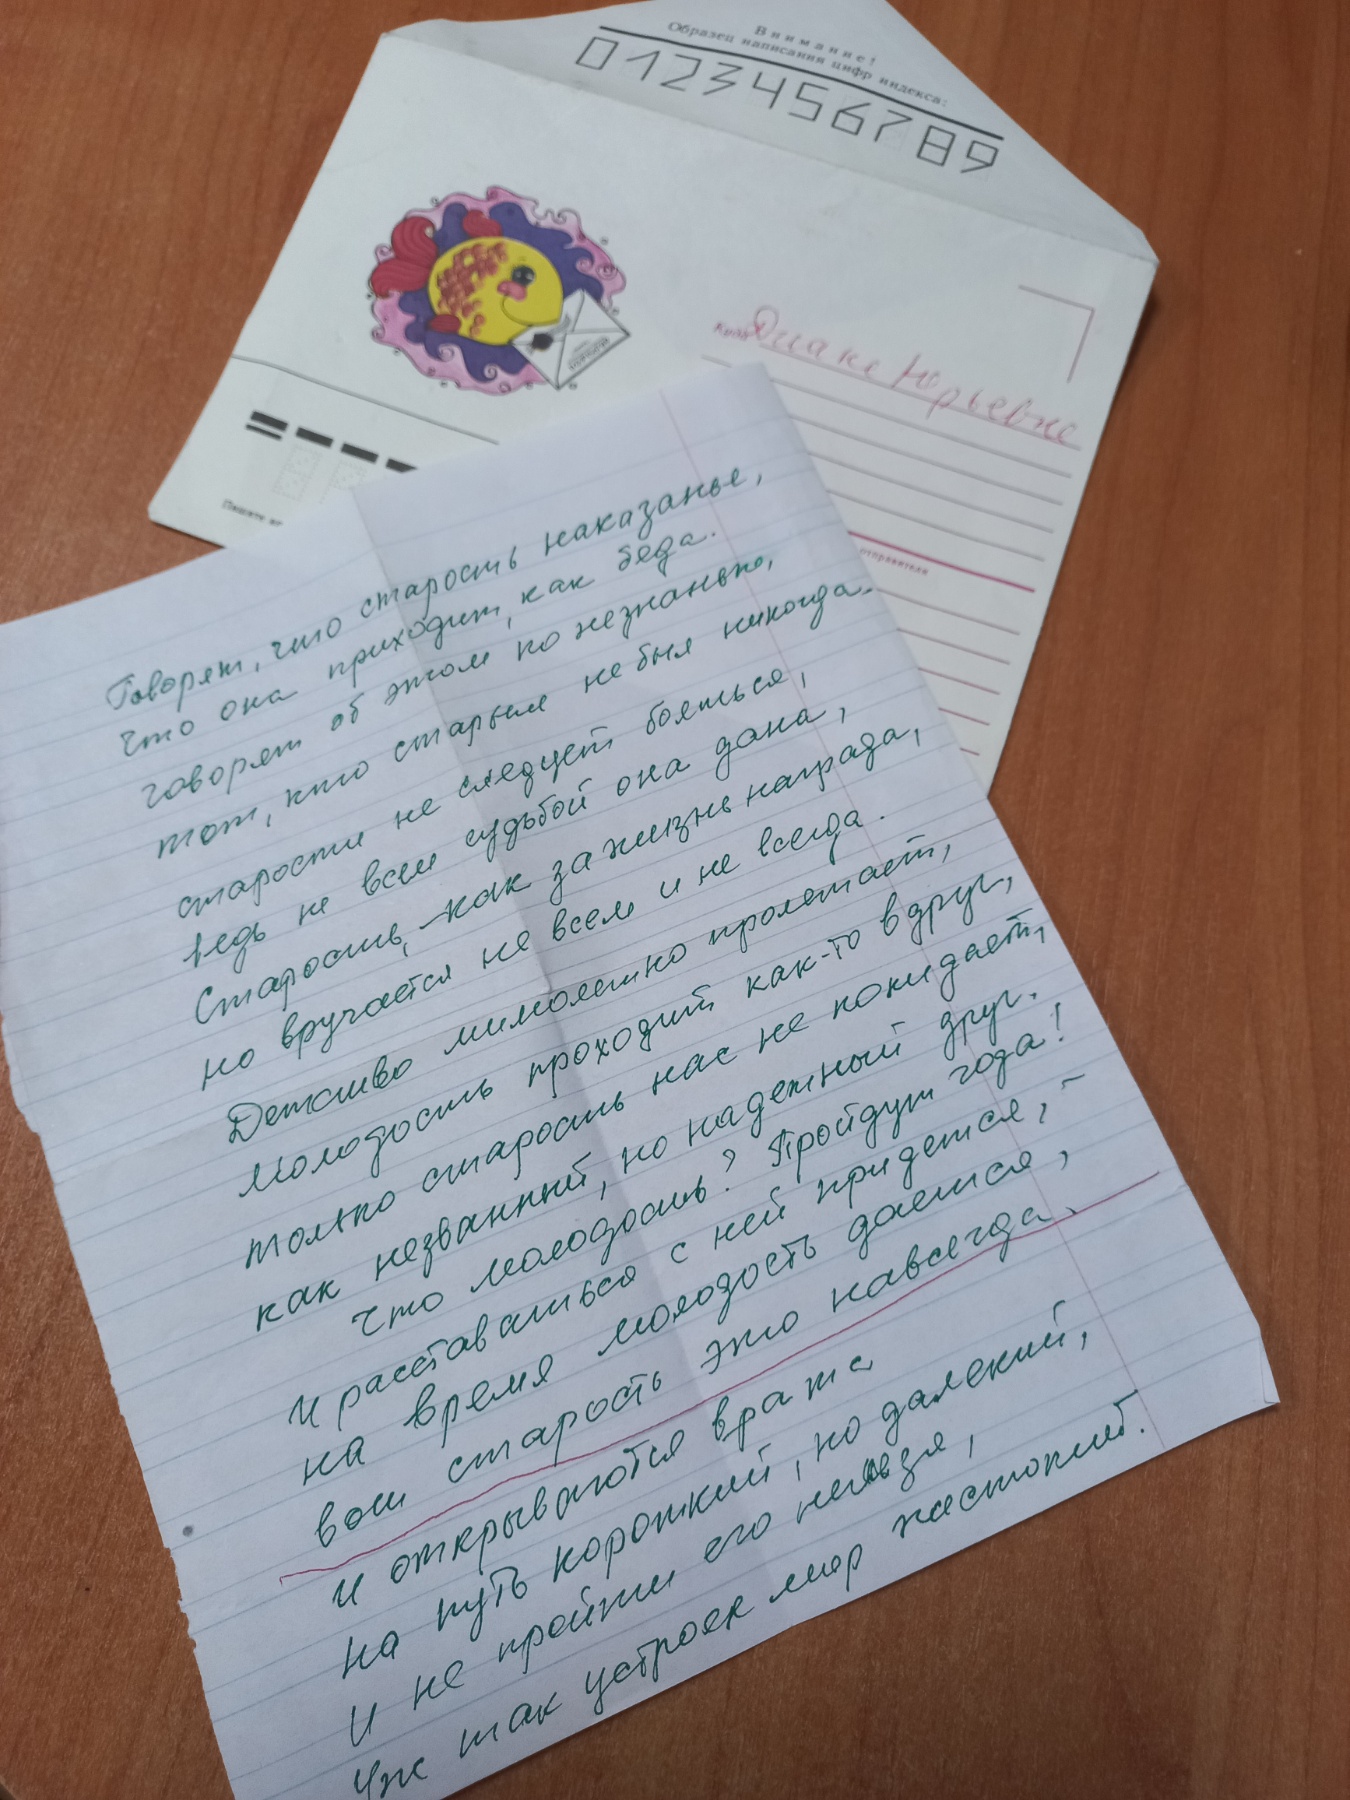 Внимание!
Образец написания цифр индекса:
0123456789
Кому Диане Юрьевне
отправителя
Пишите
Говорят, что старость наказанье,
что она приходит, как беда.
говорят об этом по незнанью,
тот, кто старым не был никогда.
старости не следует бояться,
ведь не всем судьбой она дана,
Старость, как за жизнь награда,
но вручается не всем и не всегда.
Детство мимолетно пролетает,
Молодость проходит как-то вдруг,
только старость нас не покидает,
как незванный, но надежный друг.
Что молодость? Пройдут года!
И расставаться с ней придется, –
на время молодость дается,
вот старость это навсегда.
и открываются врата
на путь короткий, но далекий,
и не пройти его нельзя,
Уж так устроен мир жестокий.